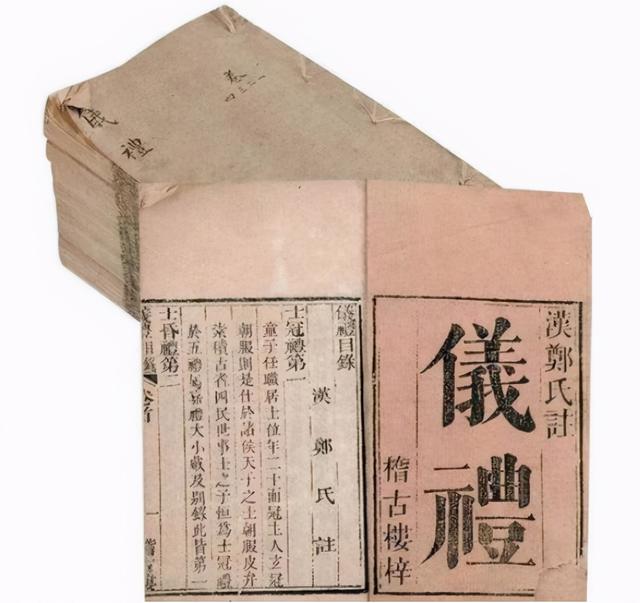 儀禮
卷一二三四
漢鄭氏註
儀禮
稽古樓梓
儀禮目錄
漢鄭氏註
士冠禮第一
童子任職居士位年二十而冠主人玄冠
朝服則是仕於諸侯天子之士朝服皮弁
素積古者四民世事士之子恒為士冠禮
於五禮屬嘉禮大小戴及別錄此皆第一
士昏禮第二
儀禮目錄 卷首 一